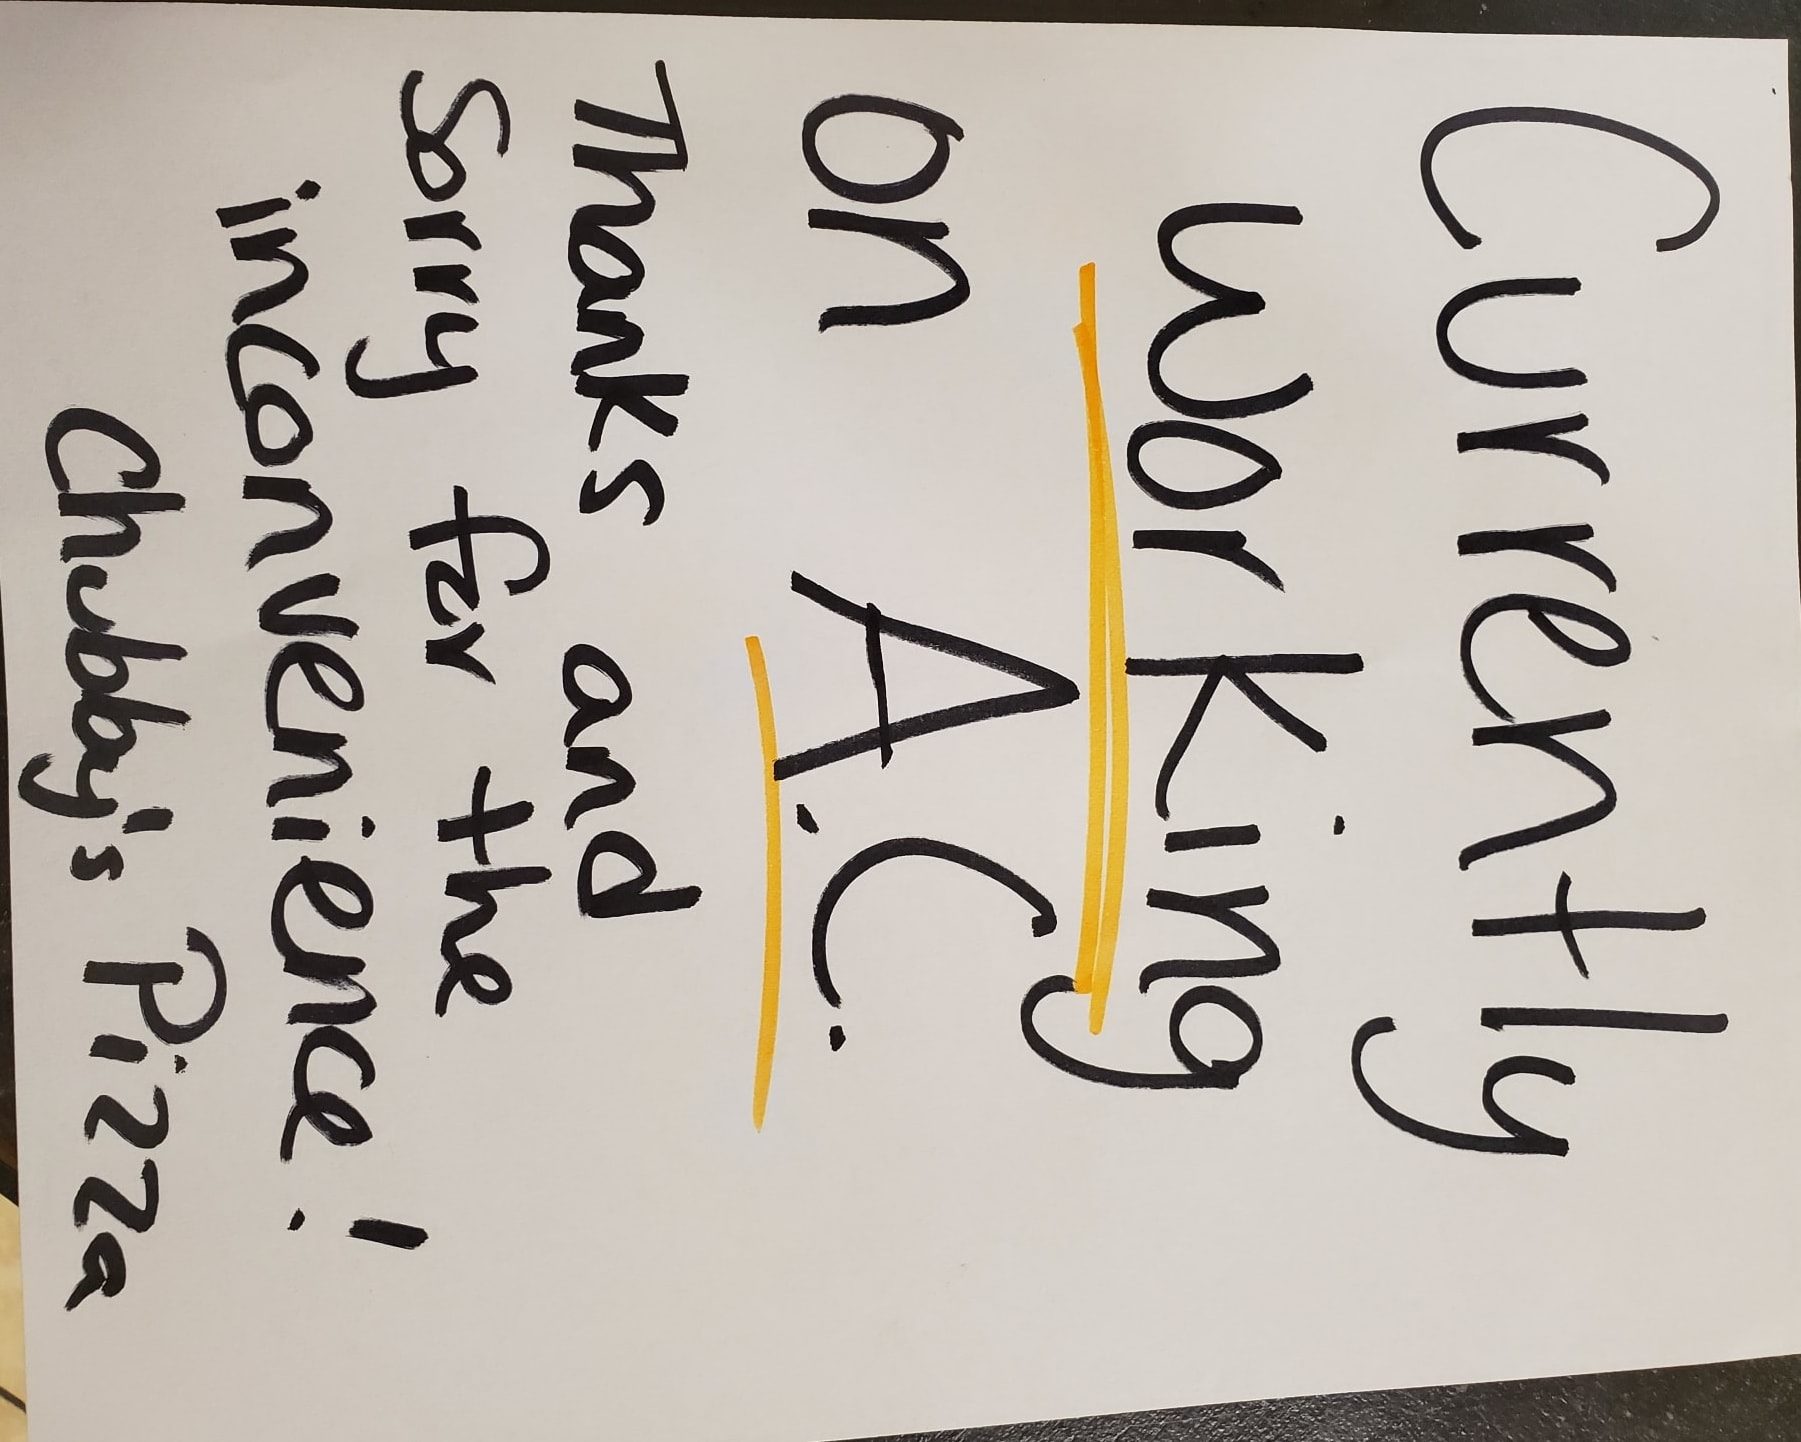 Currently
Working
on A.C.
Thanks and
Sorry for the
inconvenience!
Chubby's Pizza